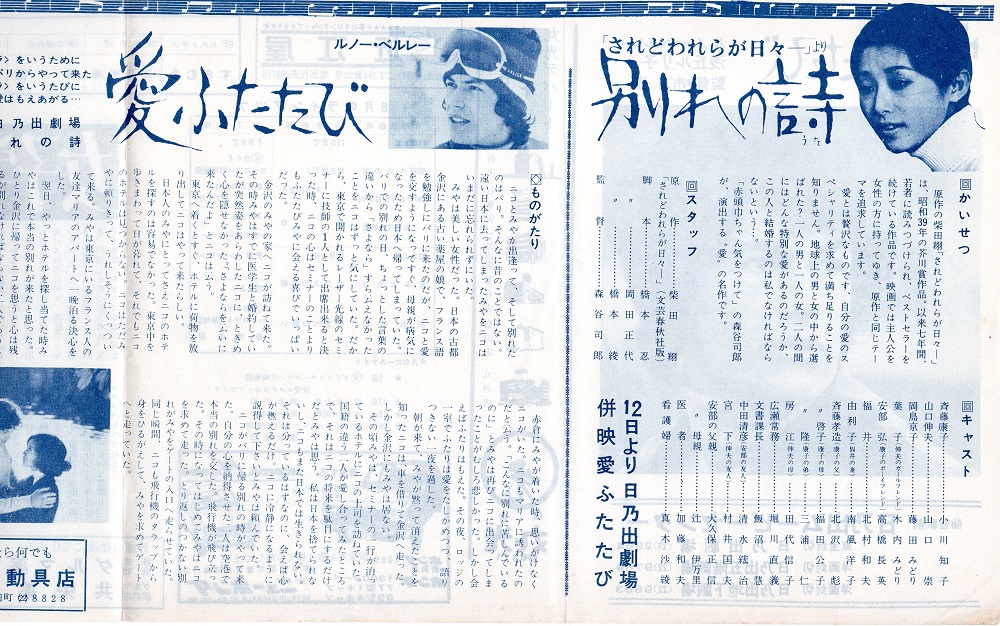 「されどわれらが日々―」より
別れの詩
うた
回かいせつ
原作の柴田翔「されどわれらが日々―」
は、昭和39年の芥川賞作品。以来七年間、
若者に読みつづけられ、ベストセラーを
続けている作品です。映画では主人公を
女性の方に持ってゆき、原作と同じテー
マを追求しています。
愛とは贅沢なものです。自分の愛のス
ペシャリティを求めて満ち足りることを
知りません。地球上の男と女の中から選
ばれた?一人の男と一人の女。二人の間
にはどんな特別な愛があるのだろうか。
この人と結婚するのは私でなければなら
ないという……。
「赤頭巾ちゃん気をつけて」の森谷司郎
が、演出する〝愛〟の名作です。
回スタッフ
原作 柴田翔
「されどわれらが日々―」(文芸春秋社版)
脚本 橋本忍
〃 岡田正代
〃 橋本綾
監督 森谷司郎
回キャスト
斉藤康子 小川知子
山口伸夫 山口崇
岡島京子 藤田みどり
葉子(伸夫のガールフレンド) 木内みどり
安部弘(京子のボーイフレンド) 高橋長英
福井 北村和夫
由利子(福井の妻) 南風洋子
斉藤孝造(康子の父) 北沢彪
〃啓子(康子の母) 福田公子
〃隆(康子の弟) 三浦仁
房江(伸夫の母) 田代信子
広瀬常務 堀川直義
文書課長 飯沼慧
田中清彦(安部の友人) 清水綋治
宮下(伸夫の友人) 村井国夫
安部の父親 大久保正信
〃母親 辻伊万里
医者 加藤和夫
看護婦 真木沙織
12日より日乃出劇場
併映愛ふたたび
ルノー・ベルレー
愛ふたたび
◎ものがたり
ニコとみやが出逢って、そして別れた
のはパリ、そんなに昔のことではない。
遠い日本に去ってしまったみやをニコは
いまだに忘れられずにいた。
みやは美しい女性だった。日本の古都
金沢にある古い薬屋の娘で、フランス語
を勉強しにパリに来たのだが、ニコと愛
を交すようになってすぐ、母親が病気に
なったため日本へ帰ってしまっていた。
パリでの別れの日、ちょっとした言葉の
違いから、さよなら、すら云えなかった
ことをニコはずっと気にしていた。だか
ら、東京で開かれるレーザー光線のセミ
ナーに技師の1人として出席出来ると決
った時、ニコの心はセミナーのことより
もふたたびみやに会える喜びでいっぱい
だった。
金沢のみやの家へニコが訪ねて来た。
その時みやはすでに医学生と婚約してい
たが突然姿をあらわしたニコに、ときめ
く心を隠せなかった。さよならを云いに
来たんだよ」とニコは云う。
東京へ着くとすぐ、ホテルに荷物を放
り出してニコはやって来たらしい。
日本人のみやにとってさえニコのホテ
ルを探すのは容易でなかった。東京中を
歩きまわって日が暮れて、そして、でも
やに頼りきって、うれしそうにくっつい
て来る。みやは東京にいるフランス人の
友達マリアのアパートへ一晩泊る決心を
した。
翌日、やっとホテルを探し当てた時み
やはこれで本当の別れが来たと思った。
ひとり金沢に帰ってニコを思うと心は残
赤倉にみやが着いた時、思いがけなく
ニコがいた。ニコもマリアに誘われたの
だという。こんなに別れに苦しんでいる
のに……みやは再びニコに出会ってしま
ったことがむしろ悲しかった。しかし会
えばふたりはもえた。その夜、ロッジの
一室でふたりは愛をたしかめつつ、語り
つきない一夜を過した。
朝が来て、みやが黙って消えたことを
知ったニコは車を借りて金沢へ走った。
しかし金沢にもみやは居ない。
その頃みやは、セミナーの一行が泊っ
ているホテルにニコの上司を訪ねていた。
国籍の違う二人が愛し合ってみたところ
で、それはニコの将来を駄目にするだけ
だとみやは思う。私は日本を捨てられな
いし、ニコもまた日本では生きられない。
それは分っているはずなのに、会えば心
が燃えるだけ……ニコに冷静になるように
説得して下さいとみやは頼んでいた。
ニコがパリに帰る別れの時がやって来
た。自分の心を納得させた二人は空港で
本当の別れを交した。飛行機が飛び立っ
た。その時になってはじめてみやは
を求めて走った。とり返しのつかない別
れがみやをゲートの入口へ走らせていた。
同じ瞬間、ニコも飛行機のタラップから
身をひるがえして、みやを求めてゲート
へと走っていた。
をいうために
パリからやって来た
をいうたびに
愛はもえあがる…
日乃出劇場
れの詩
なら何でも
動具店
町(2)8828